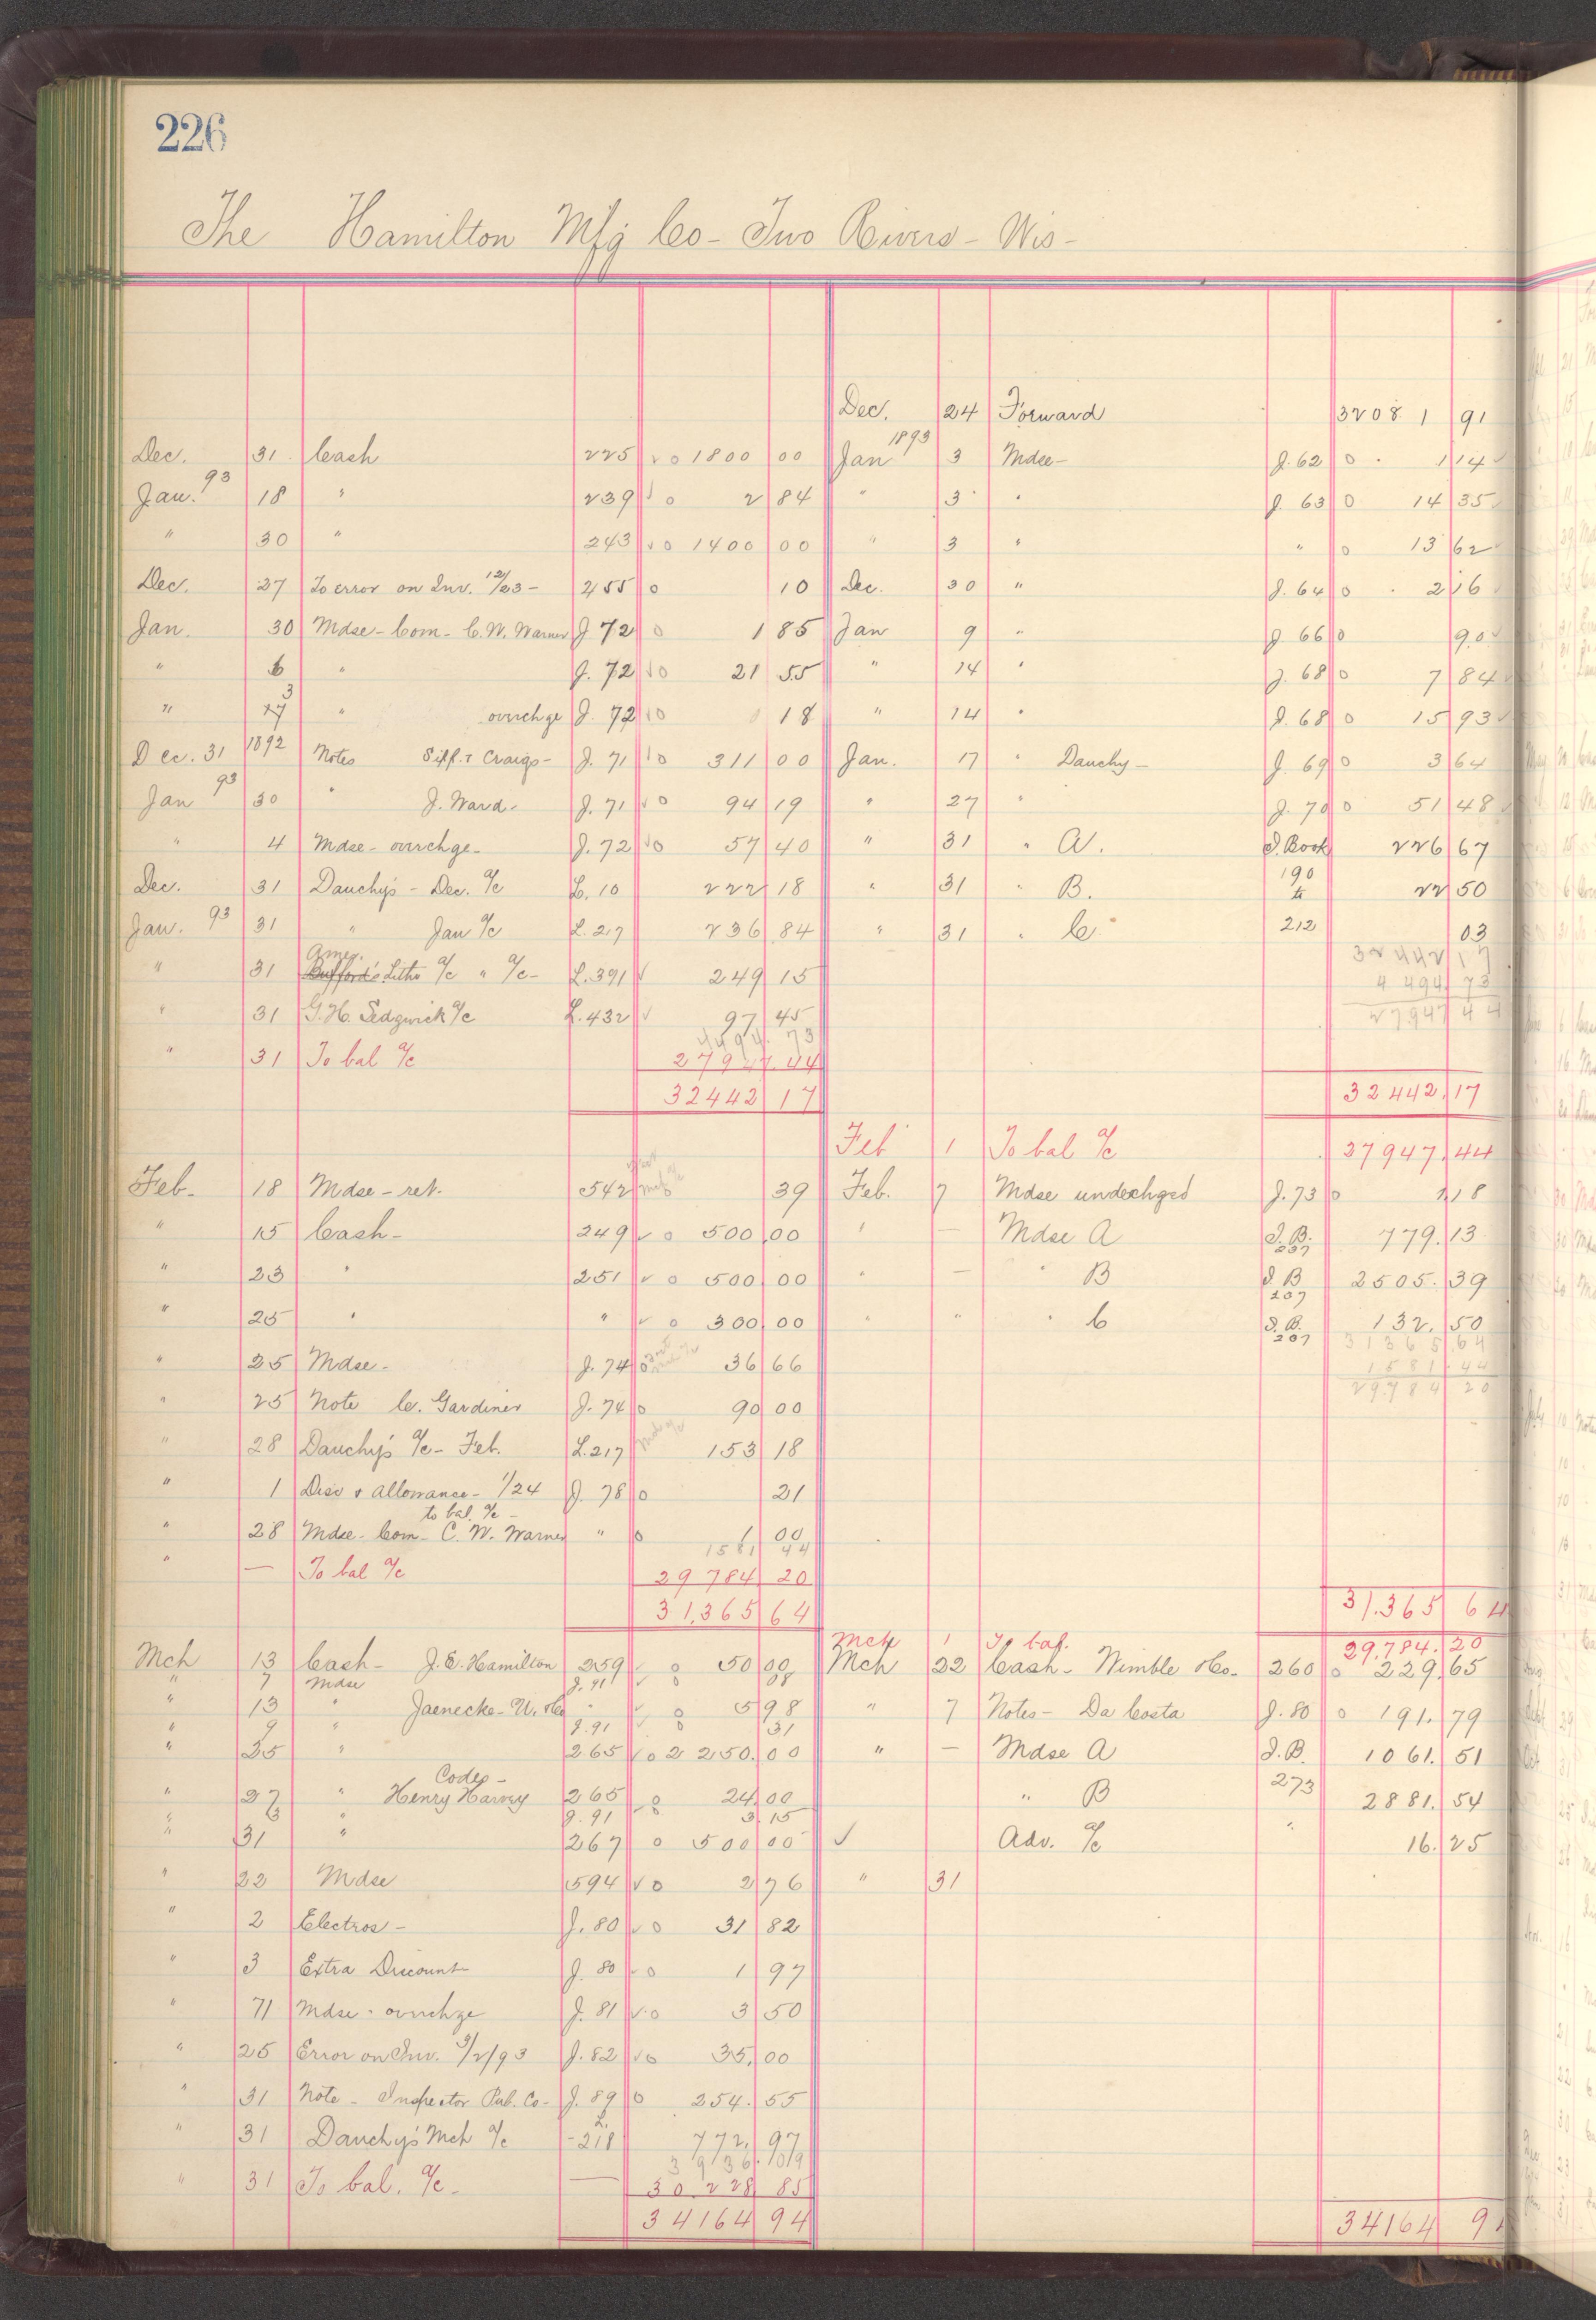 226
The Hamilton Mfg Co- Two Rivers- Wis-
Dec. 24 Forward 32081 91
Dec. 31 Cash 225 √ 0 1800 00
1893
Jan 3 Mdse- J. 62 0 1 14
Jan. 93 18 " 239 √ 0 2 84
" 3 " J. 63 0 14 35
" 30 " 243 √ 0 1400 00
" 3 " " 0 13 62
Dec. 27 To error on Inv. 12/23- 255 0 10
Dec. 30 " J. 64 0 2 16
Jan. 30 Mdse- Com- C. W. Warner J 72 0 1 85
Jan 9 " J 66 0 90
" 6 " J. 72 √0 21 55
" 14 " J. 68 0 7 84
" " ovrchge J. 72 √0 18
" 14 " J. 68 0 15 93
Dec. 31 1892 Notes Siff. & Craigs- J. 71 √0 311 00
Jan. 17 " Dauchy- J. 69 0 3 64
Jan 93 30 " J. Ward. J. 71 √0 94 19
" 27 " J. 70 0 51 48
" 4 Mdse- ovrchge- J. 72 √0 57 40
" 31 " A. S. Book 226 67
Dec. 31 Dauchy's- Dec. a/c L. 10 222 18
" 31 " B. 190 to 22 50
Jan. 93 31 " Jan a/c L. 217 236 84
" 31 " C. 212 03
32442 17
" 31 Amer. Litho a/c " a/c- L. 391 √ 249 15
4 494 73
" 31 G. H. Sedgwick a/c L. 432 √ 97 45
27947 44
4494. 73
" 31 To bal a/c 27947.44
32442 17
32442.17
Feb 1 To bal a/c 27947.44
Feb. 18 Mdse- ret. 542 39
Feb. 7 Mdse underchged J. 73 0 1 18
" 15 Cash- 249 √ 0 500 00
" — Mdse A S. B. 207 779. 13
" 23 " 251 √ 0 500 00
" — " B S B 207 2505. 39
" 25 " " √ 0 300 00
" " " C S. B. 207 132. 50
31365.64
" 25 Mdse- J. 74 0 36 66
1581.44
29.784 20
" 25 Note C. Gardiner J. 74 0 90 00
" 28 Dauchy's a/c- Feb. L. 217 153 18
" 1 Disc & Allowance- 1/24 J. 78 0 21
to bal. a/c-
" 28 Mdse- Com- C. W. Warner " 0 1 00
1581 44
" — To bal a/c 29 784 20
31,365 64
31.365 64
Mch 1 To bal. 29,784.20
Mch 13 Cash- J. E. Hamilton 259 √ 0 50 00
Mch 22 Cash- Nimble &Co- 260 0 229.65
" 7 Mdse J. 91 √ 0
" 13 " Jaenecke-U. &Co " √ 0 5 98
" 7 Notes- Da Costa J. 80 0 191. 79
" 9 " J. 91 √ 0 31
" 25 " 265 √ 0 2 250.00
" — Mdse A S. B. 1061. 51
Codes-
" 27 " Henry Harvey 265 √ 0 24.00
" B 273 2881. 54
" " J. 91 0 3.15
" 31 " 267 0 500 00
√ Adv. a/c " 16. 25
" 22 Mdse 594 √ 0 2 76
" 31
" 2 Electros- J. 80 √ 0 31 82
" 3 Extra Discount J. 80 √ 0 1 97
" 71 Mdse- ovrchge J. 81 √ 0 3 50
" 25 Error on Inv. 3/2/93 J. 82 √0 35.00
" 31 Note- Inspector Pub. Co- J. 89 0 254. 55
" 31 Dauchy's Mch a/c L. 218 772. 97
3 936. 09
" 31 To bal. a/c- — 30 228 85
34164 94
34164 94